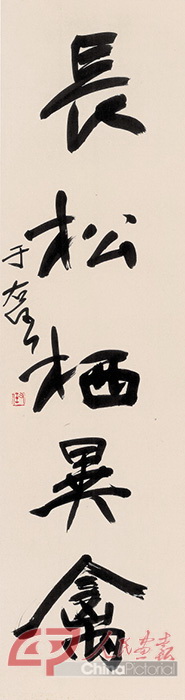 長松栖異禽
于右任
人民畫報
ChinaPictorial